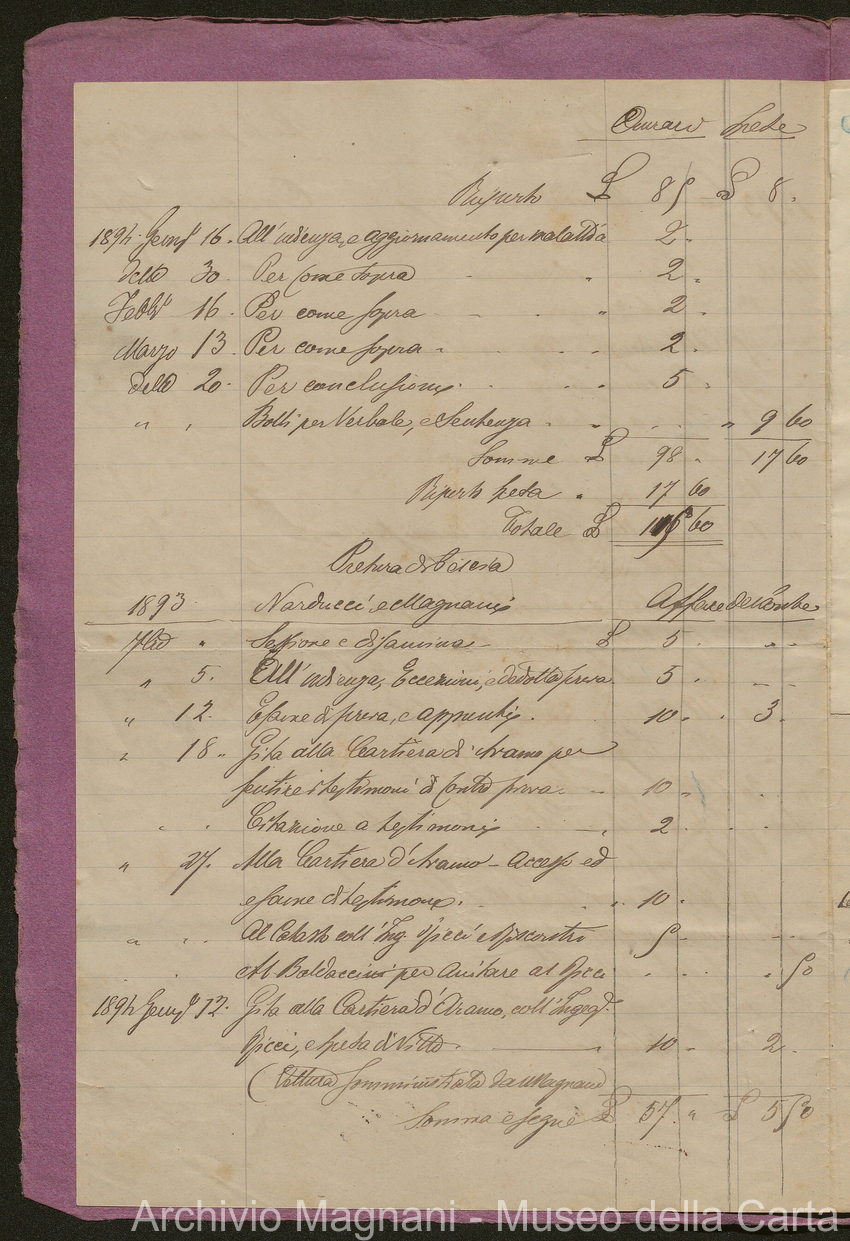 Onorari Spese
Riporto £ 85 £ 8.
1894 Genn° 16. All'udienza, e aggiornamento per malattia 2.
Detto 30. Per come sopra " 2.
Febb° 16. Per come sopra " 2.
Marzo 13. Per come sopra 2.
Detto 20. Per conclusione 5.
" " Bolli per Verbale, e Sentenza " 9 60
Somme £ 98 " 17 60
Riporto spesa " 17 60
Totale £ 115 60
Pretura di Pescia
1893 Narducci, e Magnani Affare delle
" Sessione e disamina £ 5.
" 5. All'udienza, Eccezioni, e dedotta prova 5.
" 12. Esame di prova, e appunti 10. 3.
" 18. Gita alla Cartiera di Aramo per
sentire i testimoni di contro prova 10
" " Citazione a testimoni 2
" 27. Alla Cartiera d'Aramo - Accesso ed
esame di testimone. " 10.
" " Al Catasto coll'Ing. Ricci e riscontro 5
Al Baldaccini per aiutare al Ricci " 50
1894 Genn° 12. Gita alla Cartiera d'Aramo, coll'Ingeg.
Ricci, e spesa di Vitto 10 2.
(Vettura somministrata da Magnani)
Somma e segue £ 57. " £ 5 50
Archivio Magnani - Museo della Carta